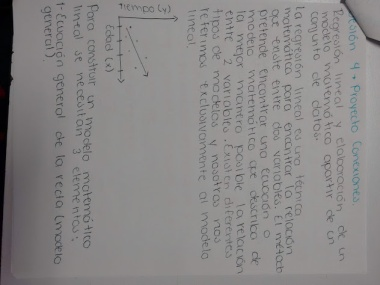 Sesión 9 + Proyecto Conexiones.
Regresión lineal y elaboración de un
modelo matemático apartir de un
conjunto de datos.
La regresión lineal es una técnica
matemática para encontrar la relación
que existe entre dos variables. El método
pretende encontrar una ecuación o
modelo matemático que describa de
la mejor manera posible la relación
entre 2 variables. Existen diferentes
tipos de modelos y nosotros nos
referimos exclusivamente al modelo
lineal.
Tiempo (y)
Edad (x)
Para construir un modelo matemático
lineal se necesitan 3 elementos:
1- Ecuación general de la recta (modelo
general)